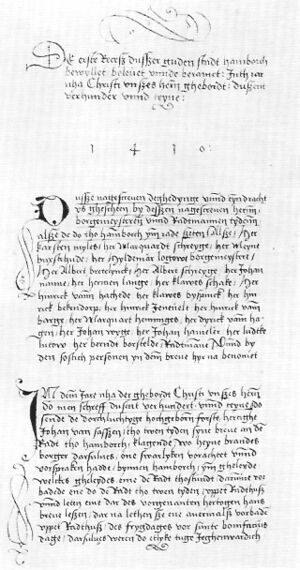 De erste Receß dusser guden stadt hamborch
bewyllet belevet unde beramet : Inth iar
nha Christi unses hern ghebordt : dusent
verhundert unnd teyne :
1 4 1 0 :
Dusse nagescreven deghedynge unnd eyndracht
ys gescheen by dessen nagescreven heren
borgermeysteren unnd Radtmannen tyden
alse de do tho hamborch ym rade seten Alse : Her
karsten myles : her Marquardt schreyge : her Meyne
buxstehude : her Hyldemar lopow borgermeystere /
Her Albert bretelynck : her Albert schreyge : her Johan
nanne : her herman lange : her klawes schake : her
hinrick vamm hachede : her klawes : her hin
rick : her hinrick Jenevelt : her hinrick vam
barge : her Marquart hennynges : her dyrick vam ha
gen : her Johan wyge : her Johan hameler : her ludeke
lutow : her bernd borstelde Radtmanne Unnd by
den sostich personen yn dem breve hyr na benomet
In dem Jare nha der ghebordt Christi unses hern
do men schreff dusent verhundert : unnd teyne do
sende de dorchluchtyge hochgeborn forste hertyghe
Johan van sassen / tho twen tyden syne breve an de
Radt tho hamborch / klagende wo heyne brandes
borger darsulves : one vorachtet unnd
vorspraken hadde : bynnen hamborch / ym gheleyde
welckes gheleydes eme de Radt thostundt darumme vor
badede ene do de Radt tho twen tyden / uppet Radthuß
unnd leten eme dar des vorgenanten hertogen hans
breve lesen / dar na lethen se ene anermalß vorbaden
uppet Radthuß / des frygdages vor sante bonifacius
dage / darsulves weren do etlyke tuge jeghenwardich